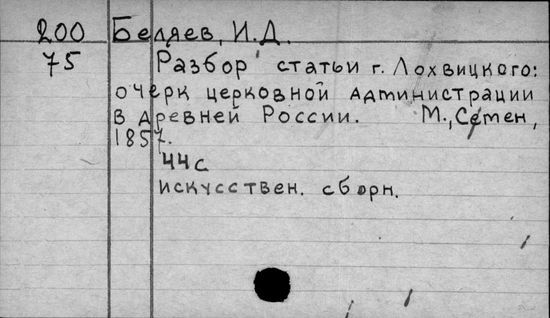 200 Беляев, И.Д.
75 Разбор статьи г. Лохвицкого:
очерк церковной администрации
в древней России. М., Семен,
1857.
44с
искусствен. сборн.